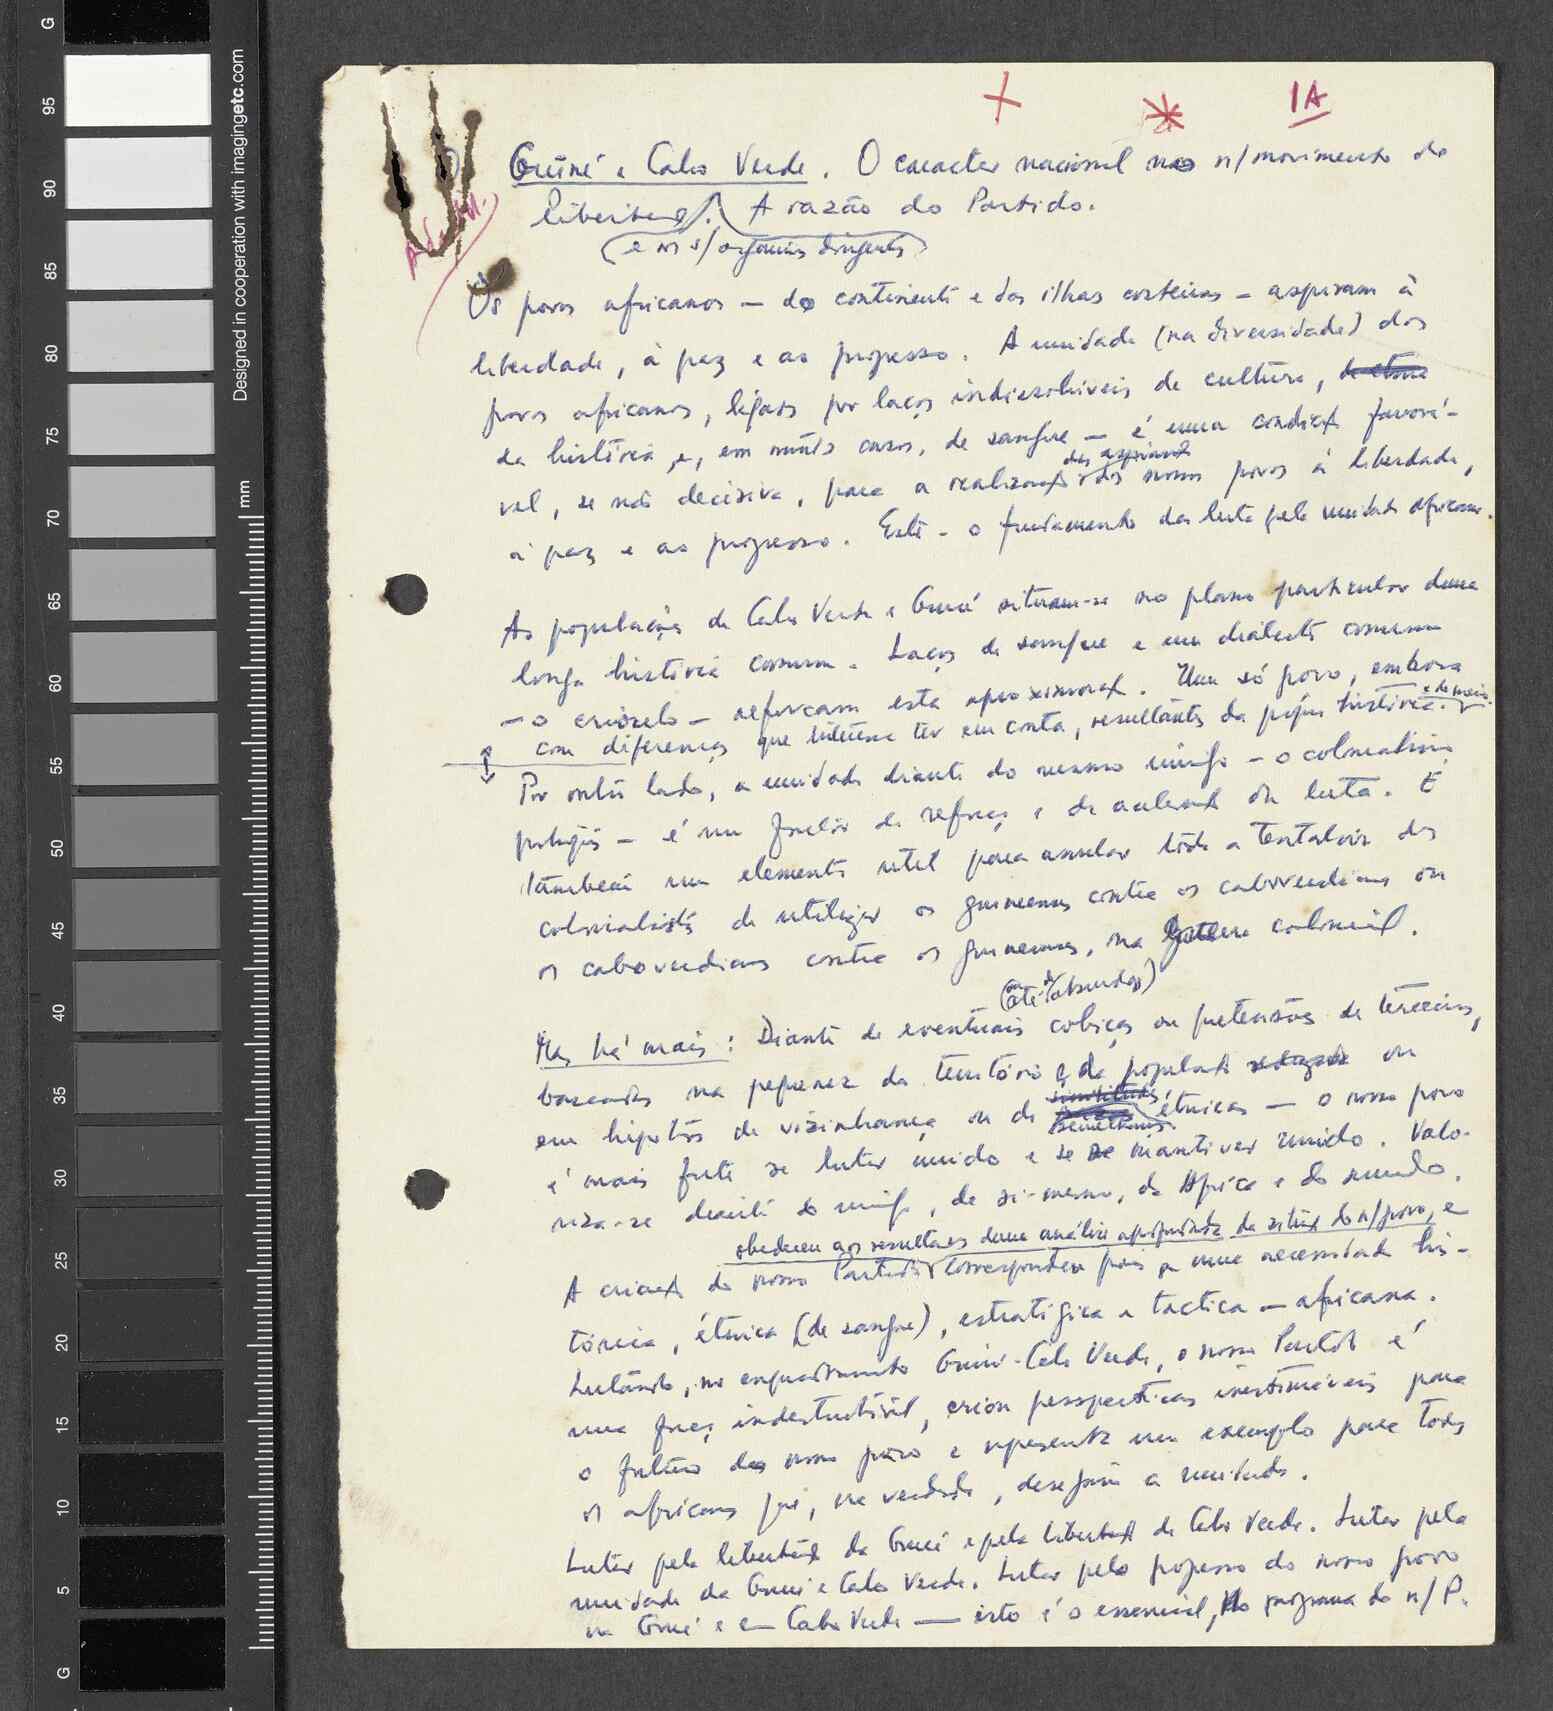 + * 1A
Guiné e Cabo Verde. O caracter nacional no n/movimento de
libertação. A razão do Partido.
(e n s/ organis dirigents)
Os povos africanos — do continente e das ilhas costeiras — aspiram à
liberdade, à paz e ao progresso. A unidade (na diversidade) dos
povos africanos, ligados por laços indissolúveis de cultura,
de história e, em muitos casos, de sangue — é uma condição favorá-
das aspirações
vel, se não decisiva, para a realização dos nossos povos à liberdade,
à paz e ao progresso. Este - o fundamento da luta pela unidade africana.
As populações de Cabo Verde e Guiné situam-se no plano particular duma
longa história comum. Laços de sangue e um dialecto comum
— o crioulo — reforçam esta aproximação. Um só povo, embora
e do meio
com diferenças que interessa ter em conta, resultantes da própria história.
Por outro lado, a unidade diante do mesmo inimigo — o colonialismo
português — é um factor de reforço e de aceleração da luta. É
também um elemento util para anular toda a tentativa dos
colonialistas de utilizar os guineenses contra os caboverdianos ou
os caboverdianos contra os guineenses, na guerra colonial.
(até absurdas)
Mas há mais: Diante de eventuais cobiças ou pretensões de terceiros,
baseados na pequenez do território e da população ou
em hipoteses de vizinhança ou de semelhanças étnicas — o nosso povo
é mais forte se lutar unido e se se mantiver unido. Valo-
riza-se diante do inimigo, de si-mesmo, da Africa e do mundo.
obedeceu aos resultados duma análise aprofundada da situação do n/povo, e
A criação do nosso Partido correspondeu pois a uma necessidade his-
tórica, étnica (de sangue), estratégica e tactica — africana.
Lutando, no enquadramento Guiné-Cabo Verde, o nosso Partido é
uma força indestructível, criou perspectivas inestimáveis para
o futuro do nosso povo e representa um exemplo para todos
os africanos que, na verdade, desejam a unidade.
Lutar pela libertação da Guiné e pela libertação de Cabo Verde. Lutar pela
unidade da Guiné e Cabo Verde. Lutar pelo progresso do nosso povo
na Guiné e em Cabo Verde — isto é o essencial, no programa do n/P.
Designed in cooperation with imagingetc.com
mm
G
95
90
85
80
75
70
65
60
55
50
45
40
35
30
25
20
15
10
5
G